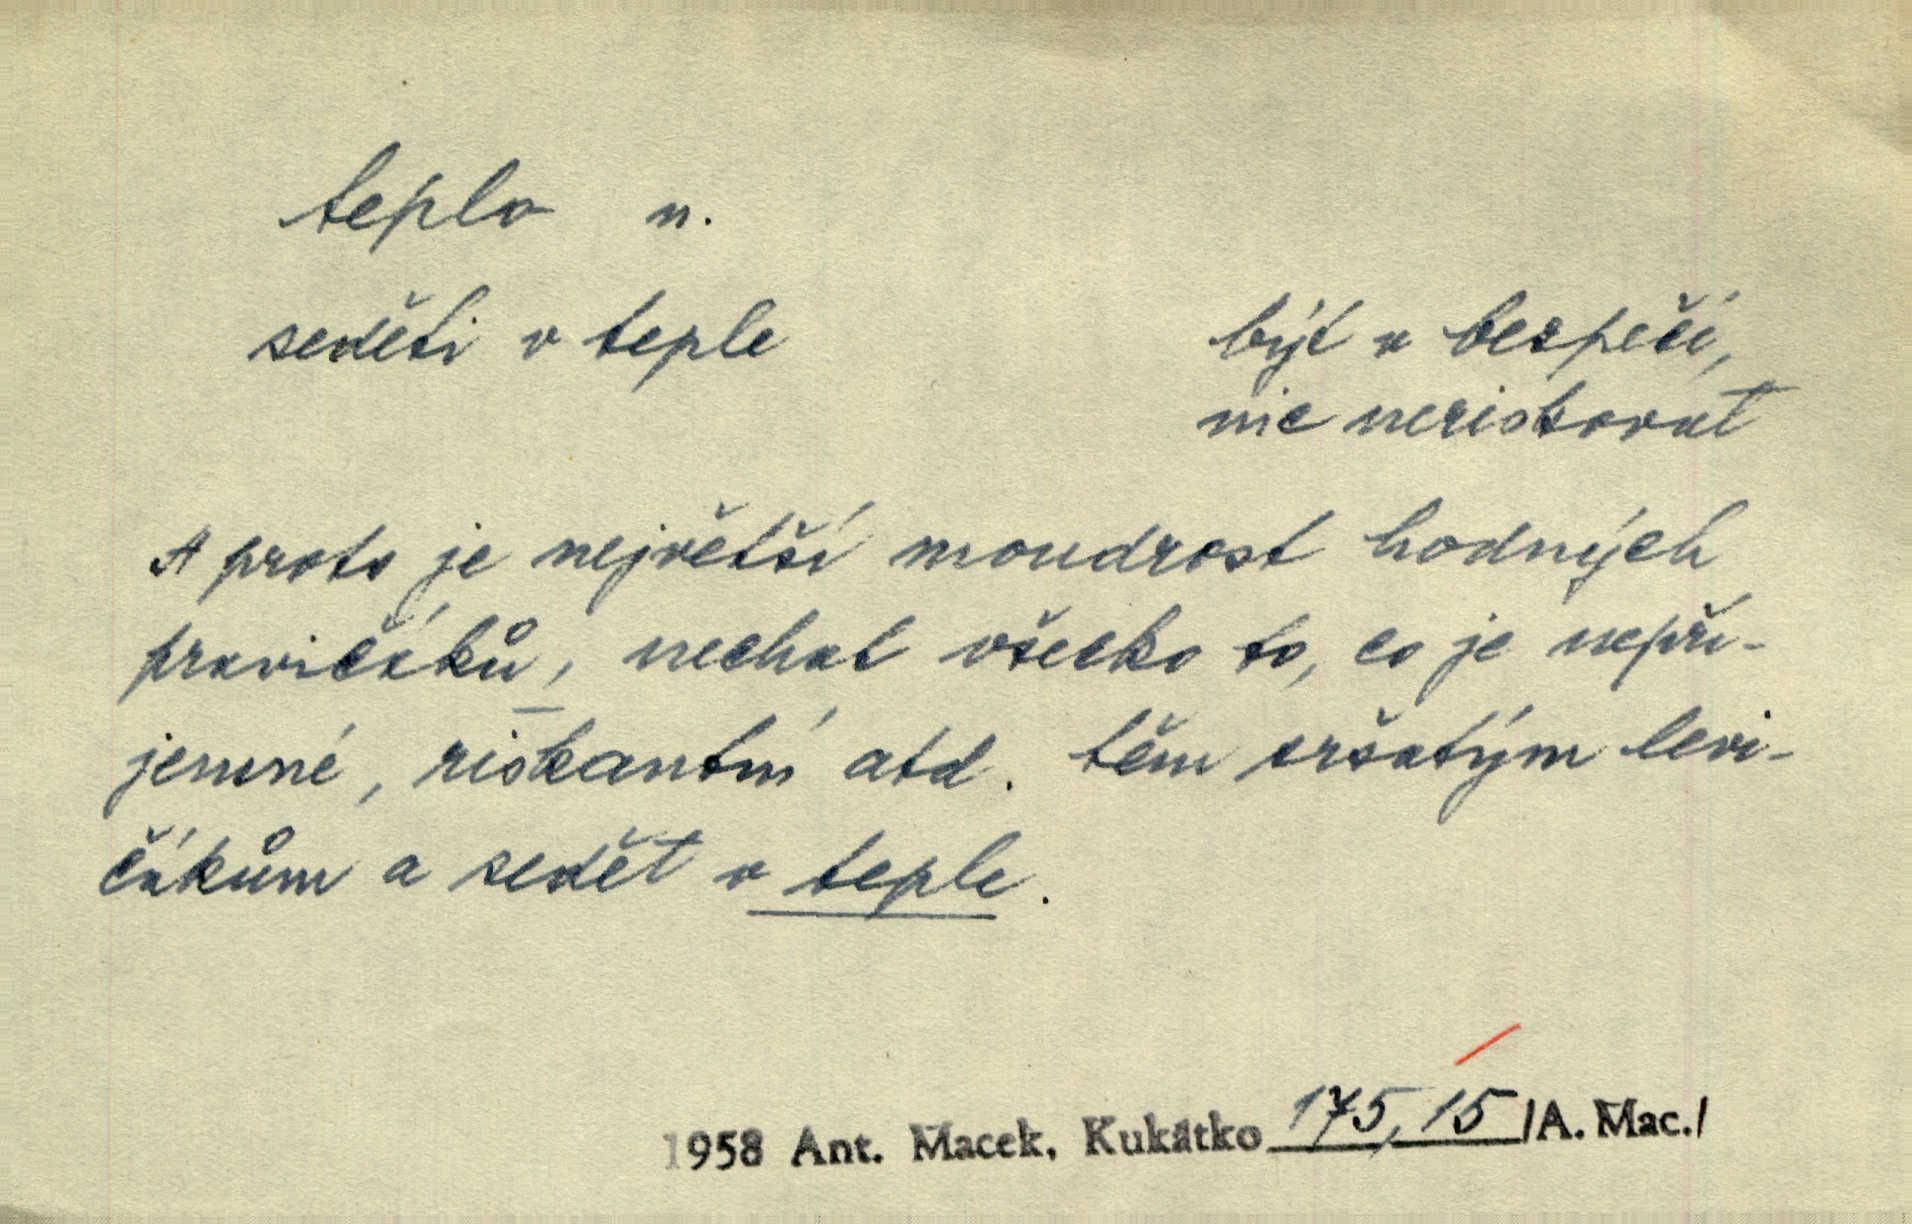 teplo n.
seděti v teple
být v bezpečí,
nic neriskovat
A proto je největší moudrost hodných
pravičáků, nechat všecko to, co je nepří-
jemné, riskantní atd. těm sršatým levi-
čákům a sedět v teple.
1958 Ant. Macek, Kukátko 175,15 /A. Mac./